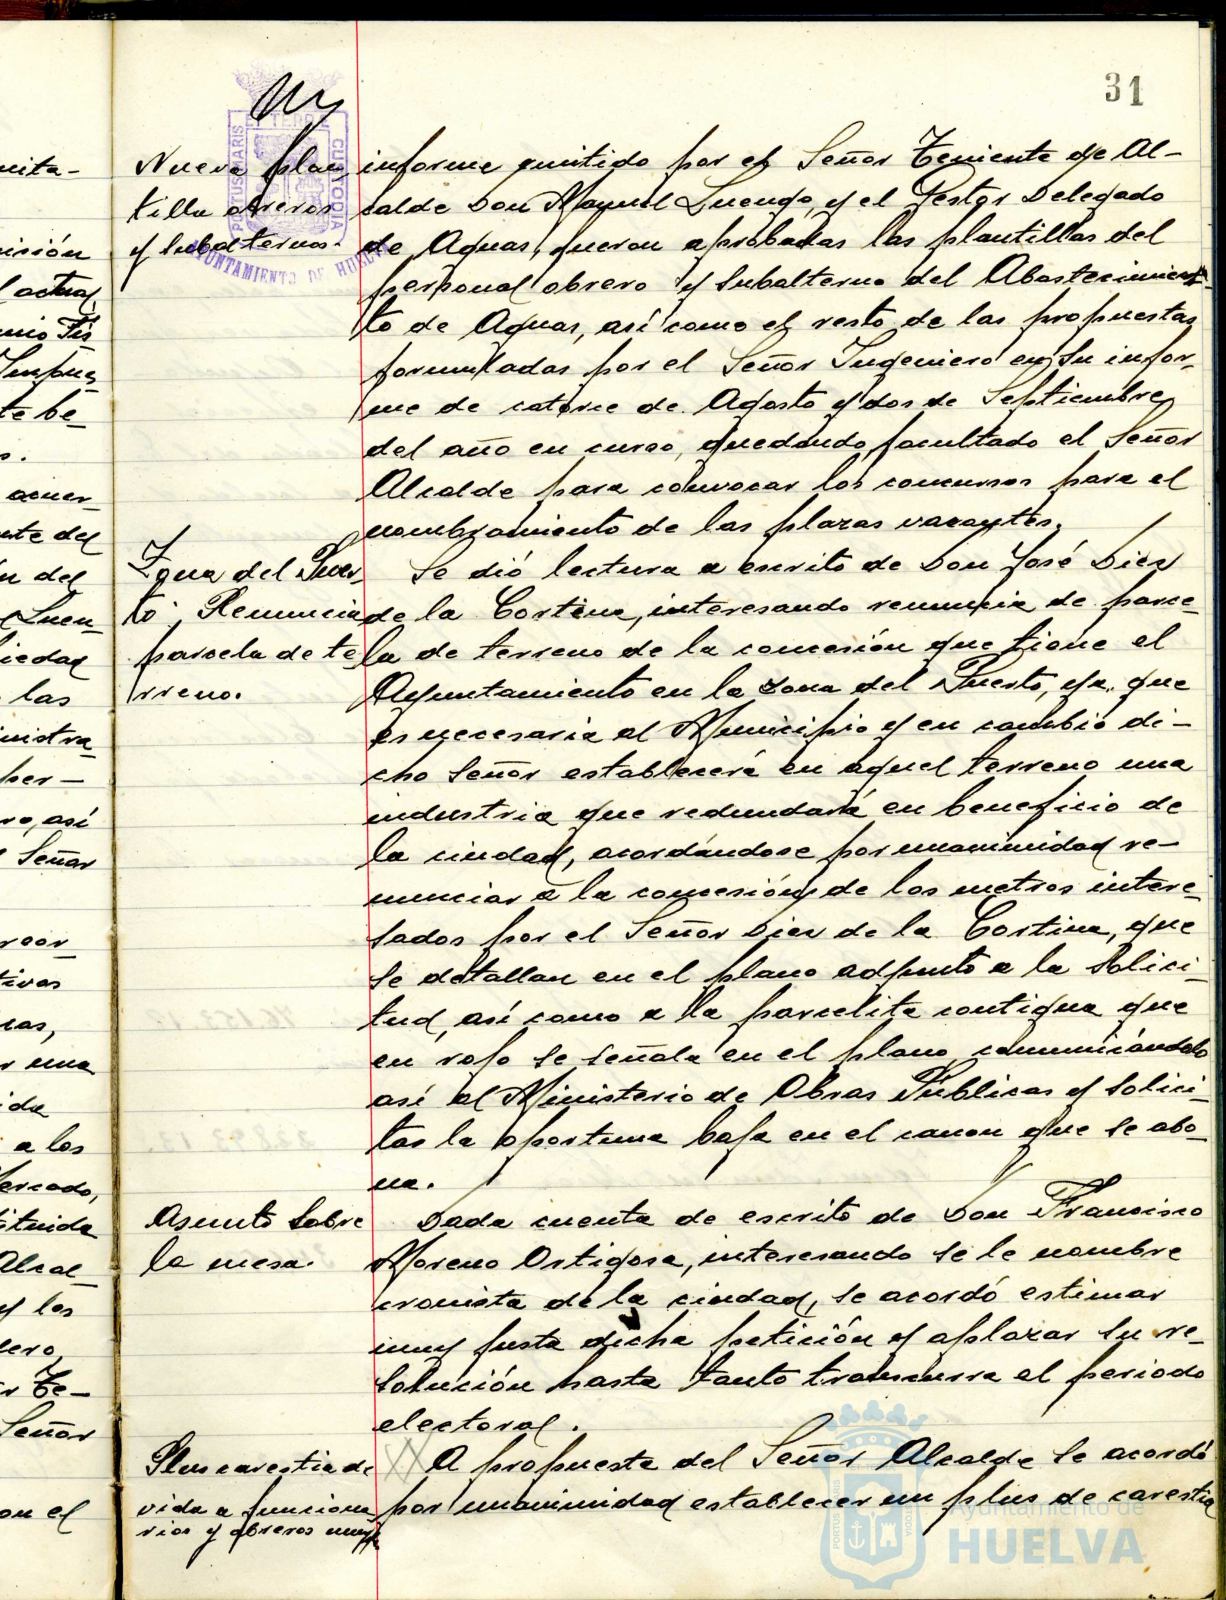 31
Nueva plan-
tilla obreros
y subalternos.
informe emitido por el Señor Teniente de Al-
calde Don Manuel Luengo, y el Gestor Delegado
de Aguas, fueron aprobadas las plantillas del
personal obrero y subalterno del Abastecimien-
to de Aguas, así como el resto de las propuestas
formuladas por el Señor Ingeniero en su infor-
me de catorce de Agosto y dos de Septiembre
del año en curso, quedando facultado el Señor
Alcalde para convocar los concursos para el
nombramiento de las plazas vacantes.
Zona del Puer-
to. Renuncia
parcela de te
rreno.
Se dió lectura a escrito de Don José Diez
de la Cortina, interesando renuncia de parce-
la de terreno de la concesión que tiene el
Ayuntamiento en la zona del Puerto, ya que
es necesaria al Municipio y en cambio di-
cho Señor establecerá en aquel terreno una
industria que redundará en beneficio de
la ciudad, acordándose por unanimidad re-
nunciar a la concesión de los metros intere-
sados por el Señor Diez de la Cortina, que
se detallan en el plano adjunto a la solici-
tud, así como a la parcelita contigua que
en rojo se señala en el plano, comunicándolo
así al Ministerio de Obras Públicas y solici-
tar la oportuna baja en el canon que se abo-
na.
Asunto sobre
la mesa.
Dada cuenta de escrito de Don Francisco
Moreno Ortigosa, interesando se le nombre
cronista de la ciudad, se acordó estimar
muy justa dicha petición y aplazar su re-
solución hasta tanto transcurra el periodo
electoral.
Plus carestia de
vida a funciona
rios y obreros
A propuesta del Señor Alcalde se acordó
por unanimidad establecer un plus de carestia
nita-
isión
l actual
te be-
o.
acuer-
nte del
n del
Luen-
iedad
las
nistra-
per-
ro, así
Señor
tivos
r una
ida
a los
ercado,
tituida
Alcal-
y los
r Te-
Señor
on el
PORTUS MARIS ET TERRE CUSTODIA
AYUNTAMIENTO DE HUELVA
Ayuntamiento de
HUELVA